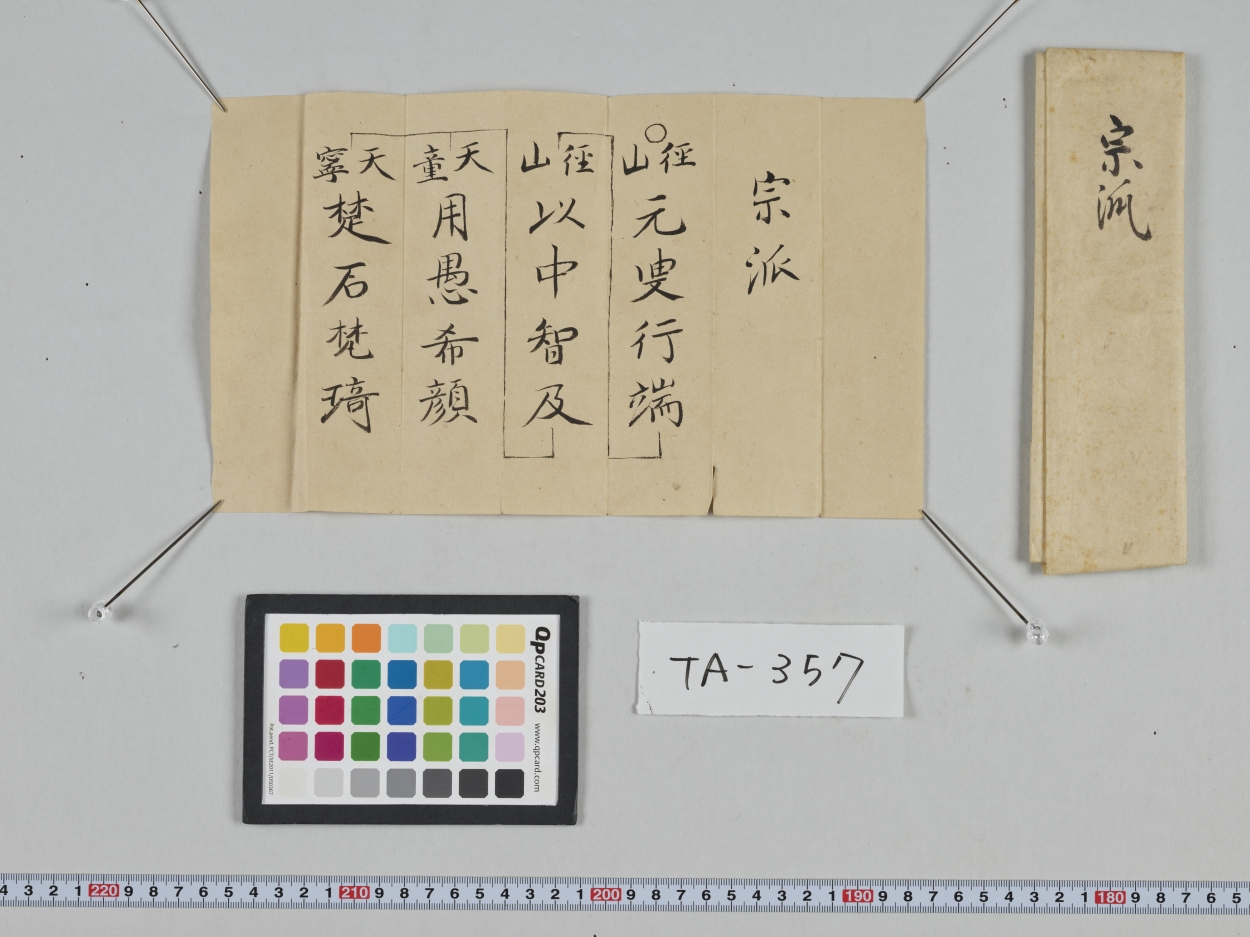 宗派
宗派
○
徑山 元叟行端
徑山 以中智及
天童 用愚希顔
天寧 楚石梵琦
TA-357
QPCARD 203 www.qpcard.com
4 3 2 1 220 9 8 7 6 5 4 3 2 1 210 9 8 7 6 5 4 3 2 1 200 9 8 7 6 5 4 3 2 1 190 9 8 7 6 5 4 3 2 1 180 9 8 7 6 5